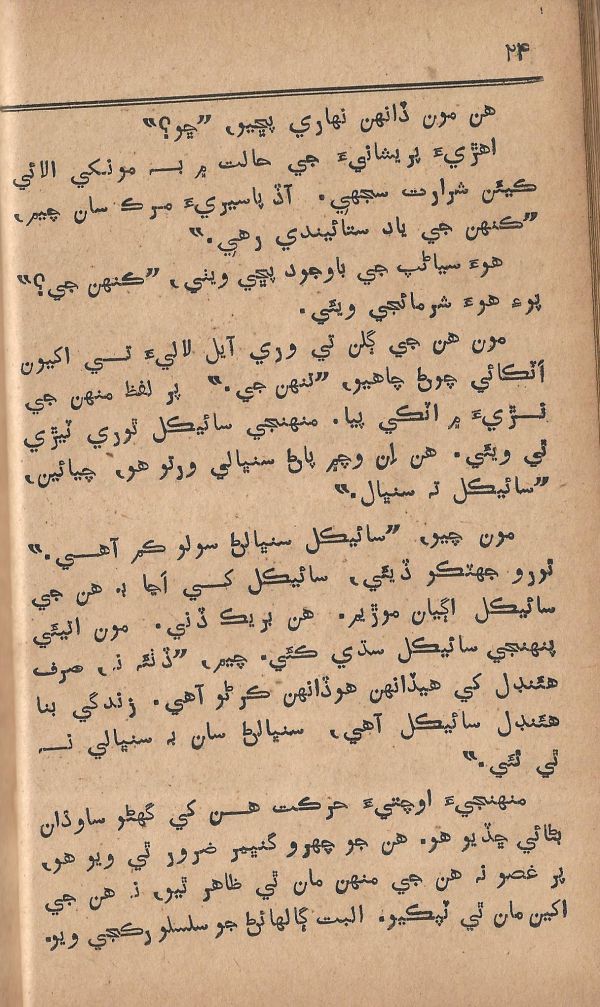 ۲۴
هن مون ڏانهن نهاري پڇيو، ”ڇو؟“
اهڙيءَ پريشانيءَ جي حالت ۾ بہ مونکي الائي
ڪيئن شرارت سجهي. آڏ پاسيريءَ مرڪ سان چيم،
”ڪنهن جي ياد ستائيندي رهي.“
هوءَ سياڻپ جي باوجود پڇي ويٺي، ”ڪنهن جي؟“
پوءِ هوءَ شرمائجي ويئي.
مون هن جي ڳلن تي وري آيل لاليءَ تي اکيون
اٽڪائي چوڻ چاهيو، ”تنهن جي.“ پر لفظ منهن جي
نڙيءَ ۾ اٽڪي پيا. منهنجي سائيڪل ٿوري ٽيڙي
ٿي ويئي. هن اِن وچ۾ پاڻ سنڀالي ورتو هو، چيائين،
”سائيڪل تہ سنڀال.“
مون چيو، ”سائيڪل سنڀالڻ سولو ڪم آهي.“
ٿورو جهٽڪو ڏيئي، سائيڪل کي اڃا بہ هن جي
سائيڪل اڳيان موڙيم. هن بريڪ ڏني. مون اتيئي
پنهنجي سائيڪل سڌي ڪئي. چيم، ”ڏٺئہ نہ، صرف
هئنڊل کي هيڏانهن هوڏانهن ڪرڻو آهي. زندگي بنا
هئنڊل سائيڪل آهي، سنڀالڻ سان بہ سنڀالي نہ
ٿي ٿئي.“
منهنجيءَ اوچتيءَ حرڪت هن کي گهڻو ساوڌان
بڻائي ڇڏيو هو. هن جو چهرو گنڀير ضرور ٿي ويو هو،
پر غصو نہ هن جي منهن مان ٿي ظاهر ٿيو، نہ هن جي
اکين مان ٿي ٽپڪيو. البت ڳالهائڻ جو سلسلو رڪجي ويو.